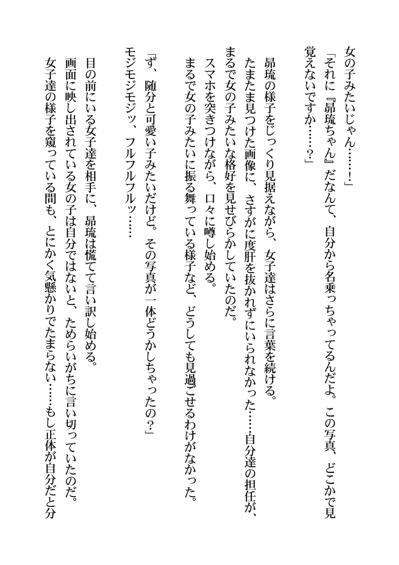 女の子みたいじゃん……！」
「それに『昴琉ちゃん』だなんて、自分から名乗っちゃってるんだよ。この写真、どこかで見
覚えないですか……？」
昴琉の様子をじっくり見据えながら、女子達はさらに言葉を続ける。
たまたま見つけた画像に、さすがに度肝を抜かれずにいられなかった……自分達の担任が、
まるで女の子みたいな格好を見せびらかしていたのだ。
スマホを突きつけながら、口々に噂し始める。
まるで女の子みたいに振る舞っている様子など、どうしても見過ごせるわけがなかった。
「ず、随分と可愛い子みたいだけど。その写真が一体どうかしちゃったの？」
モジモジモジッ、フルフルフルッ……
目の前にいる女子達を相手に、昴琉は慌てて言い訳し始める。
画面に映し出されている女の子は自分ではないと、ためらいがちに言い切っていたのだ。
女子達の様子を窺っている間も、とにかく気懸かりでたまらない……もし正体が自分だと分